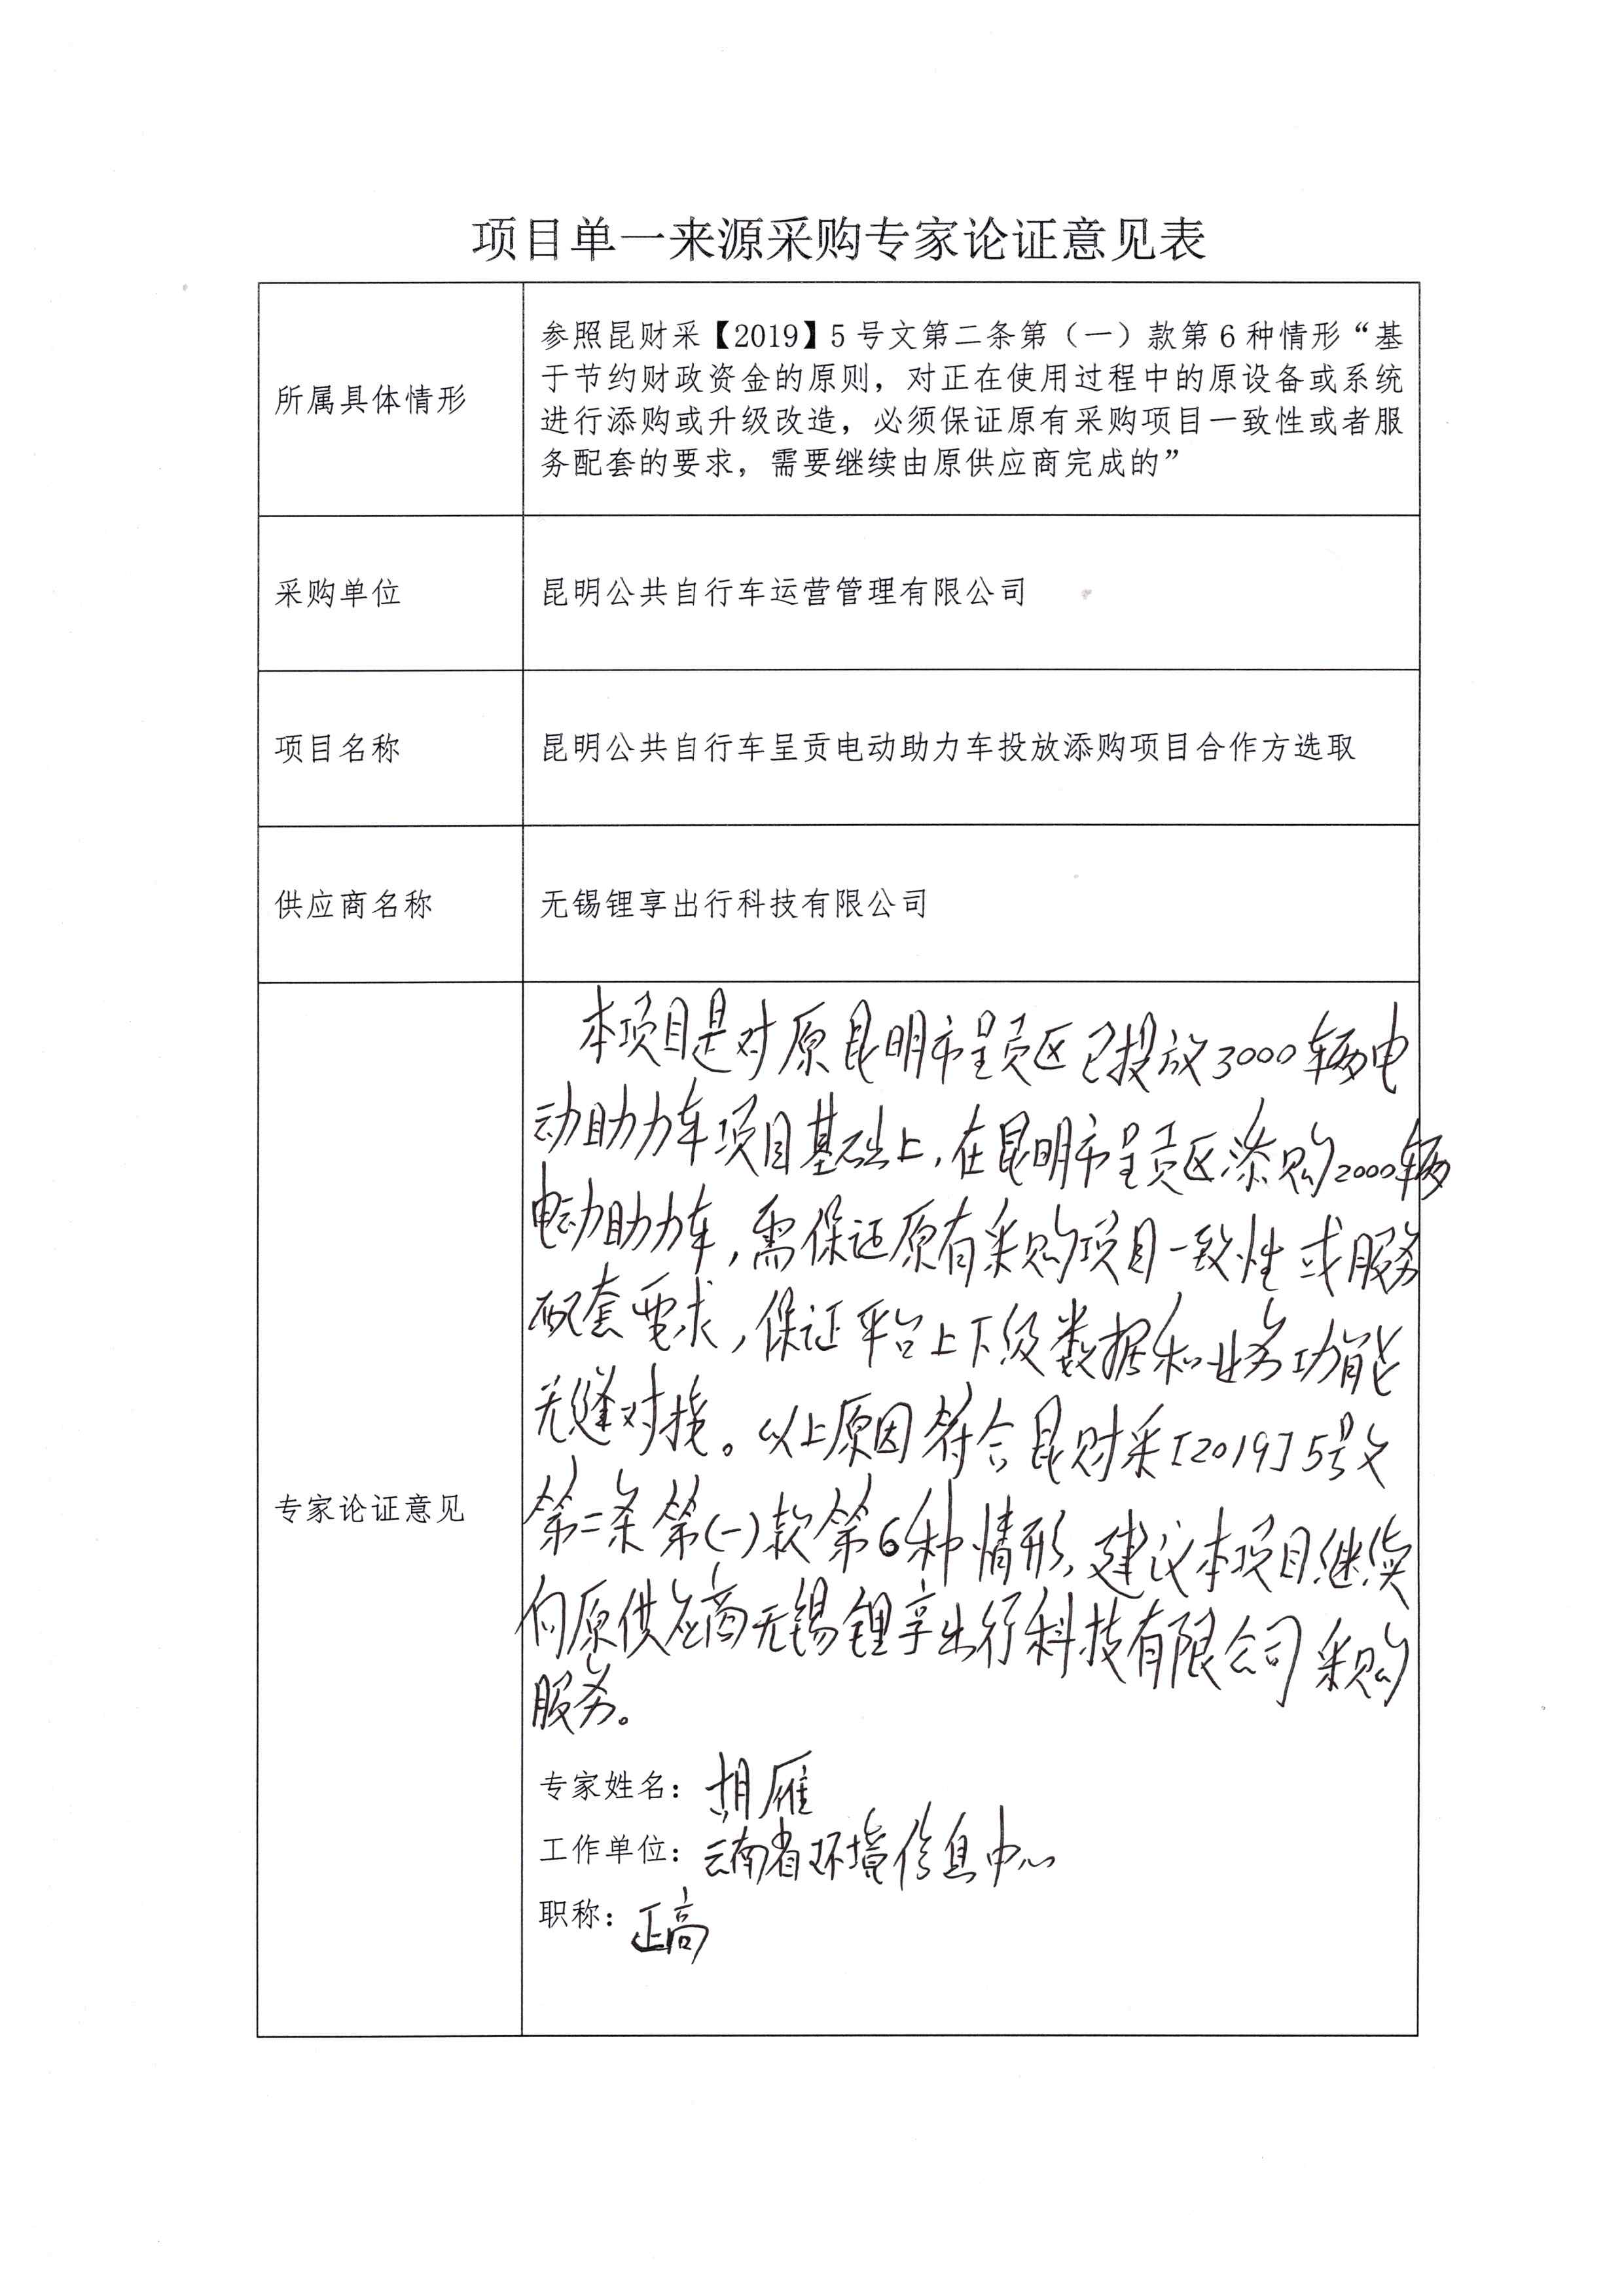 项目单一来源采购专家论证意见表
所属具体情形
参照昆财采【2019】5号文第二条第（一）款第6种情形“基
于节约财政资金的原则，对正在使用过程中的原设备或系统
进行添购或升级改造，必须保证原有采购项目一致性或者服
务配套的要求，需要继续由原供应商完成的”
采购单位
昆明公共自行车运营管理有限公司
项目名称
昆明公共自行车呈贡电动助力车投放添购项目合作方选取
供应商名称
无锡锂享出行科技有限公司
专家论证意见
本项目是对原昆明市呈贡区已投放3000辆电
动助力车项目基础上，在昆明市呈贡区添购2000辆
电动助力车，需保证原有采购项目一致性或服务
配套要求，保证平台上下级数据和业务功能
无缝对接。以上原因符合昆财采[2019]5号文
第二条第(一)款第6种情形，建议本项目继续
向原供应商无锡锂享出行科技有限公司采购
服务。
专家姓名：胡雁
工作单位：云南省环境信息中心
职称：正高